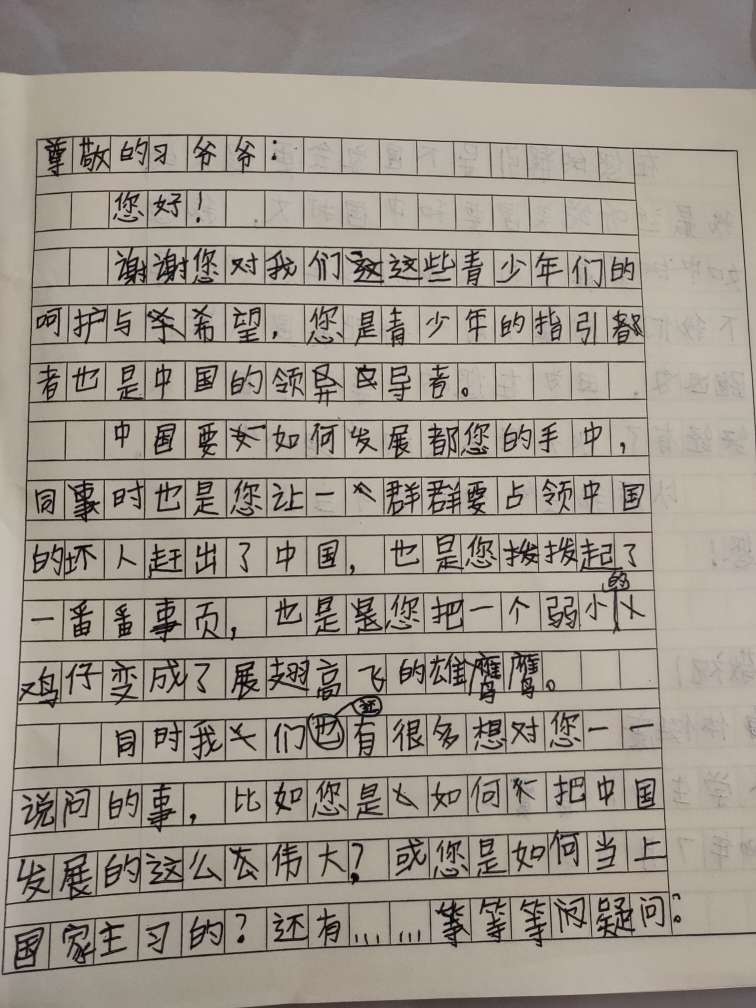 尊敬的习爷爷：
您好！
谢谢您对我们这这些青少年们的
呵护与希望，您是青少年的指引都
者也是中国的领导者。
中国要如何发展都您的手中，
同事时也是您让一群群要占领中国
的坏人赶出了中国，也是您拨拨起了
一番番事页，也是是您把一个弱小的
鸡仔变成了展翅高飞的雄鹰鹰。
同时我们也还有很多想对您一一
说问的事，比如您是如何把中国
发展的这么伟大？或您是如何当上
国家主习的？还有……等等等问疑问：